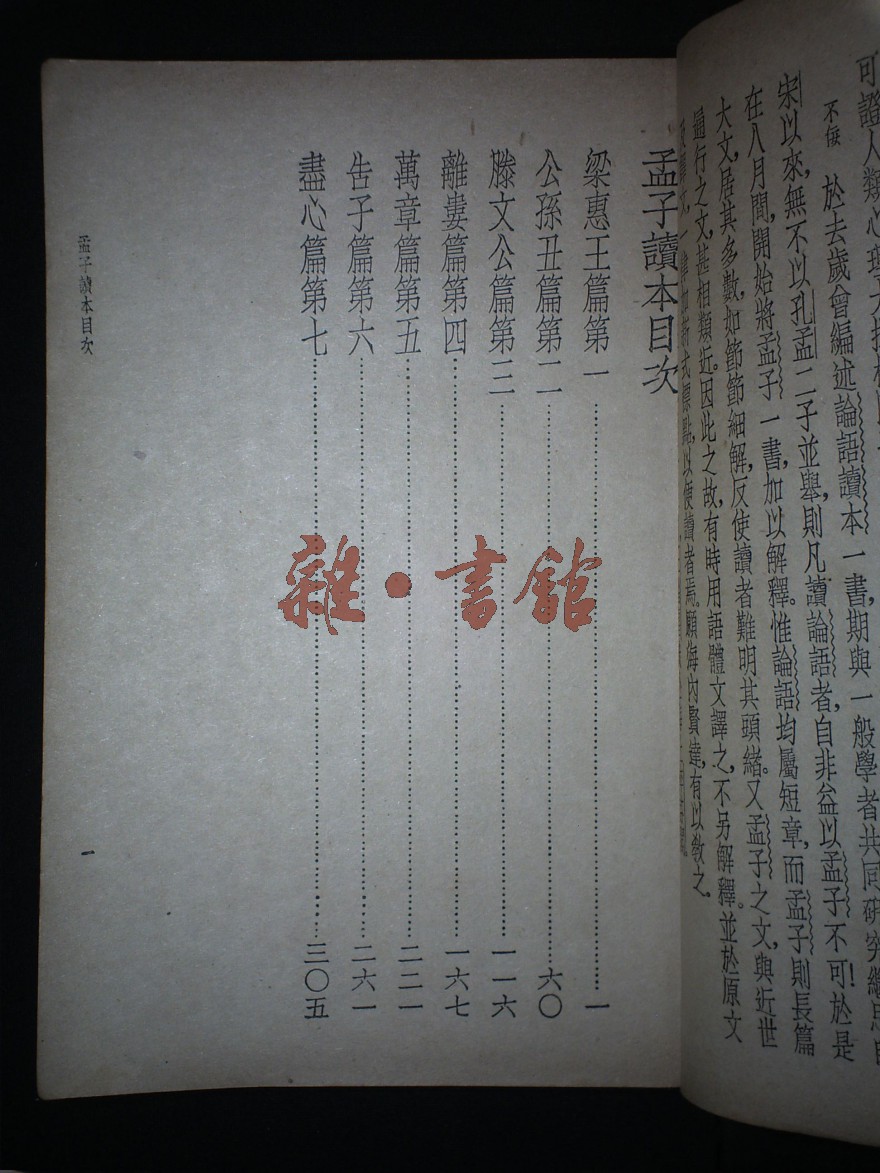 可證人類心理
不佞於去歲曾編述論語讀本一書,期與一般學者共同研究繼思自
宋以來,無不以孔孟二子並舉,則凡讀論語者,自非益以孟子不可!於是
在八月間,開始將孟子一書,加以解釋。惟論語均屬短章,而孟子則長篇
大文,居其多數,如節節細解,反使讀者難明其頭緒。又孟子之文,與近世
通行之文,甚相類近。因此之故,有時用語體文譯之,不另解釋。並於原文
新式標點,以便讀者焉。願海內賢達,有以敎之。
孟子讀本目次
梁惠王篇第一……一
公孫丑篇第二……六〇
滕文公篇第三……一一六
離婁篇第四……一六七
萬章篇第五……二二一
告子篇第六……二六一
盡心篇第七……三〇五
孟子讀本目次
一
雜·書館